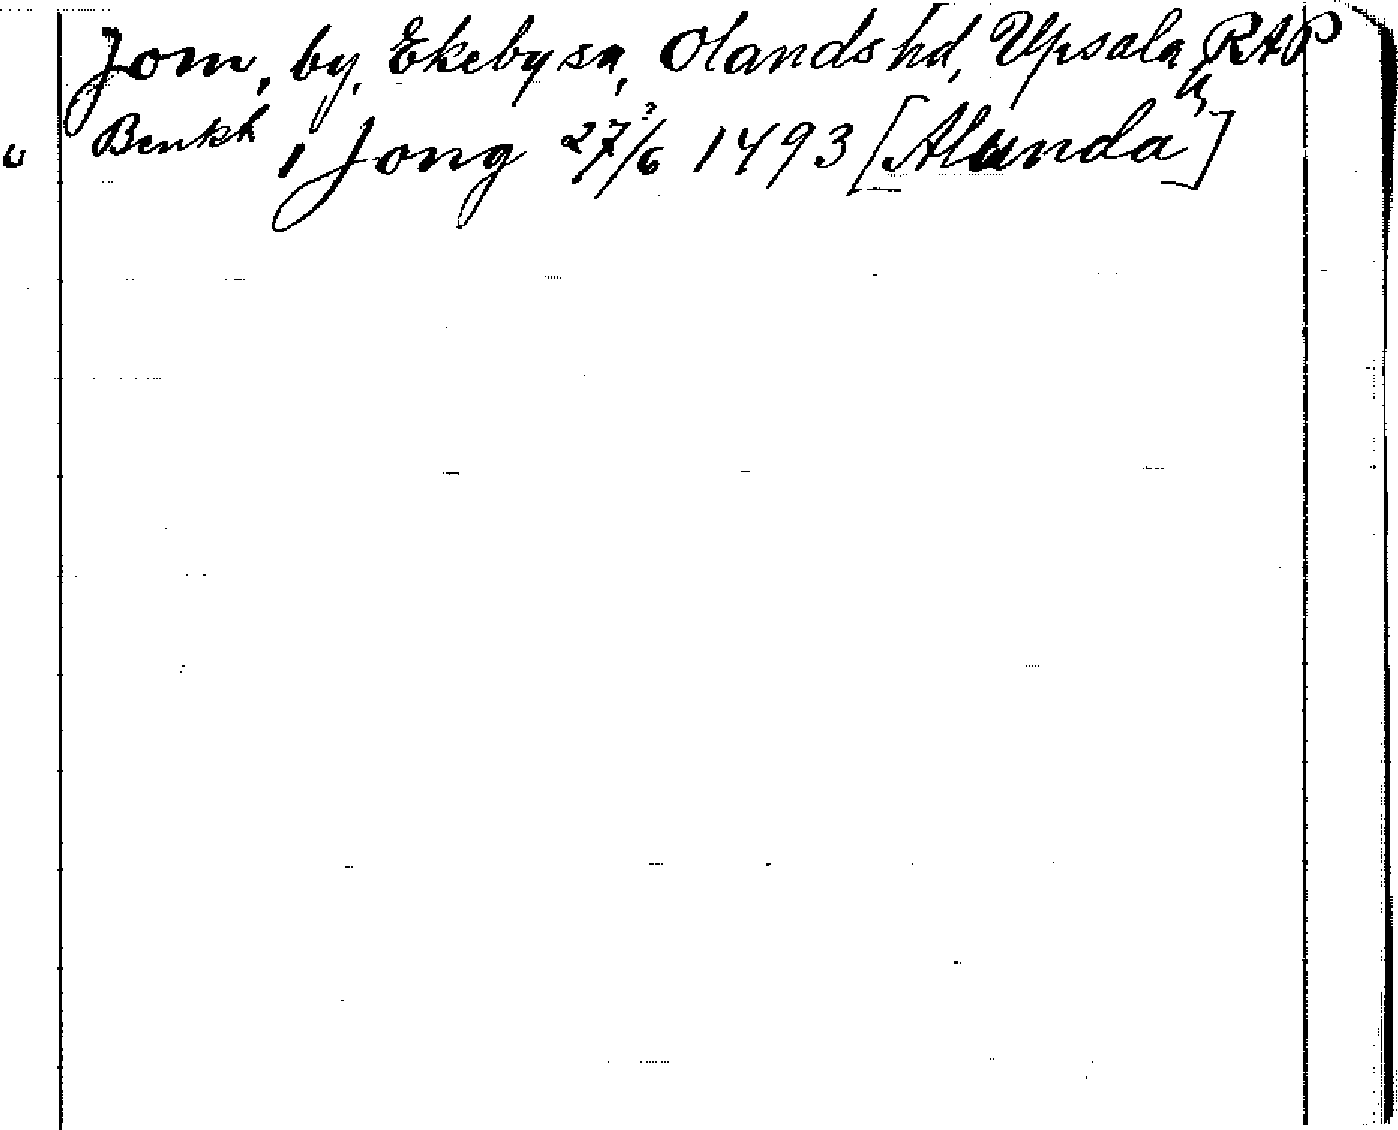 Jom, by, Ekeby sn, Olands hd, Upsala l, RAP
u Benkh i Jong 27/6 ? 1493 [Alunda]